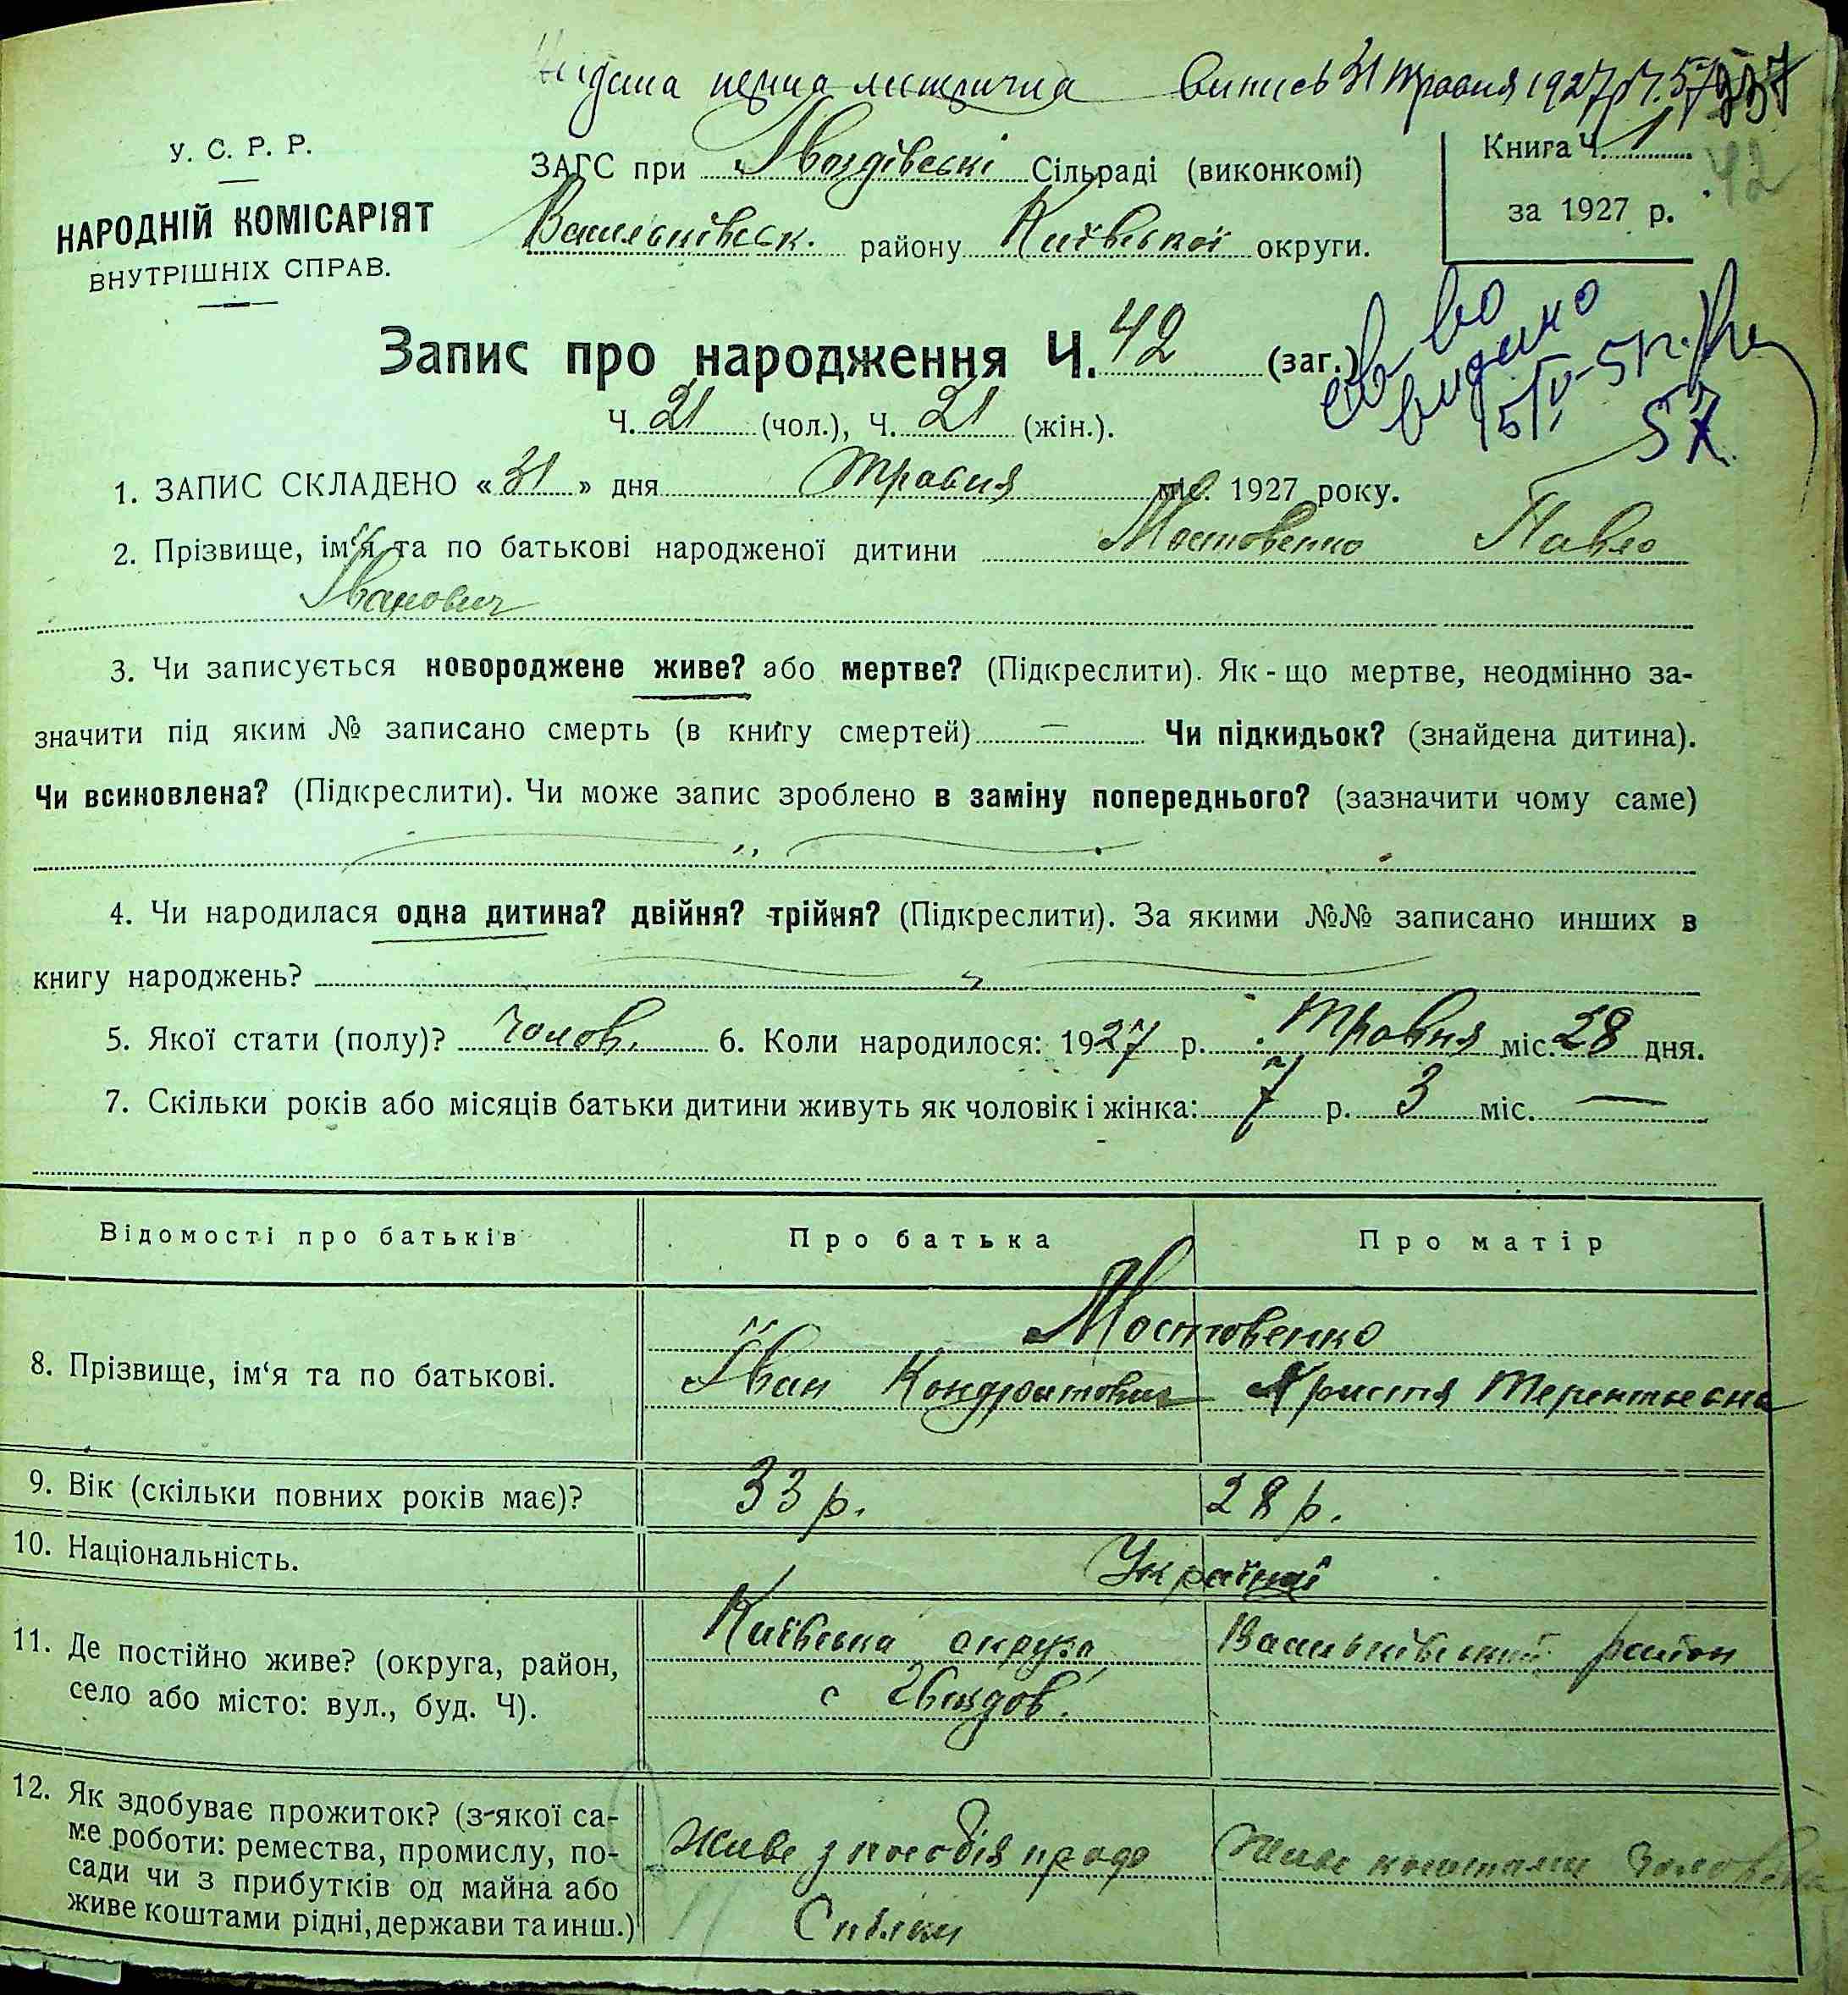 Видана перша метрична Випись 31 травня 1927 р.
У. С. Р. Р.
НАРОДНІЙ КОМІСАРІЯТ
ВНУТРІШНІХ СПРАВ.
ЗАГС при Гвоздівські Сільраді (виконкомі)
Васильківськ. району Київської округи.
Книга Ч. 1
42
за 1927 р.
Запис про народження Ч. 42 (заг.)
св во
видано
57
Ч. 21 (чол.), Ч. 21 (жін.).
1. ЗАПИС СКЛАДЕНО «31» дня травня міс. 1927 року.
2. Прізвище, ім'я та по батькові народженої дитини Мостовенко Павло
Іванович
3. Чи записується новороджене живе? або мертве? (Підкреслити). Як-що мертве, неодмінно за-
значити під яким № записано смерть (в книгу смертей) — Чи підкидьок? (знайдена дитина).
Чи всиновлена? (Підкреслити). Чи може запис зроблено в заміну попереднього? (зазначити чому саме)
4. Чи народилася одна дитина? двійня? трійня? (Підкреслити). За якими №№ записано инших в
книгу народжень?
5. Якої стати (полу)? чолов. 6. Коли народилося: 1927 р. Травня міс. 28 дня.
7. Скільки років або місяців батьки дитини живуть як чоловік і жінка: 7 р. 3 міс. —
Відомості про батьків Про батька Про матір
Мостовенко
8. Прізвище, ім'я та по батькові. Іван Кондратович Христя Терентьевна
9. Вік (скільки повних років має)? 33 р. 28 р.
10. Національність. Українці
11. Де постійно живе? (округа, район, Київська округа, Васильківський район
село або місто: вул., буд. Ч). с Гвоздов.
12. Як здобуває прожиток? (з-якої са-
ме роботи: ремества, промислу, по- Живе з пособія проф Живе коштами Чоловіка
сади чи з прибутків од майна або
живе коштами рідні, держави та инш.) Спілки